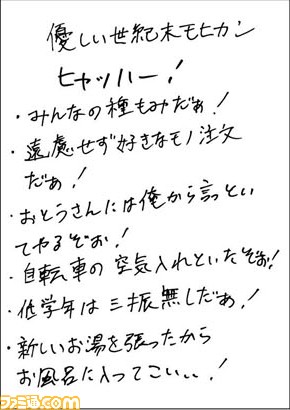 優しい世紀末モヒカン
ヒャッハー!
・みんなの種もみだぁ!
・遠慮せず好きなモノ注文
だぁ!
・おとうさんには俺から言っとい
てやるぞぉ!
・自転車の空気入れといたぞぉ!
・低学年は三振無しだぁ!
・新しいお湯を張ったから
お風呂に入ってこい、、!
ファミ通.com